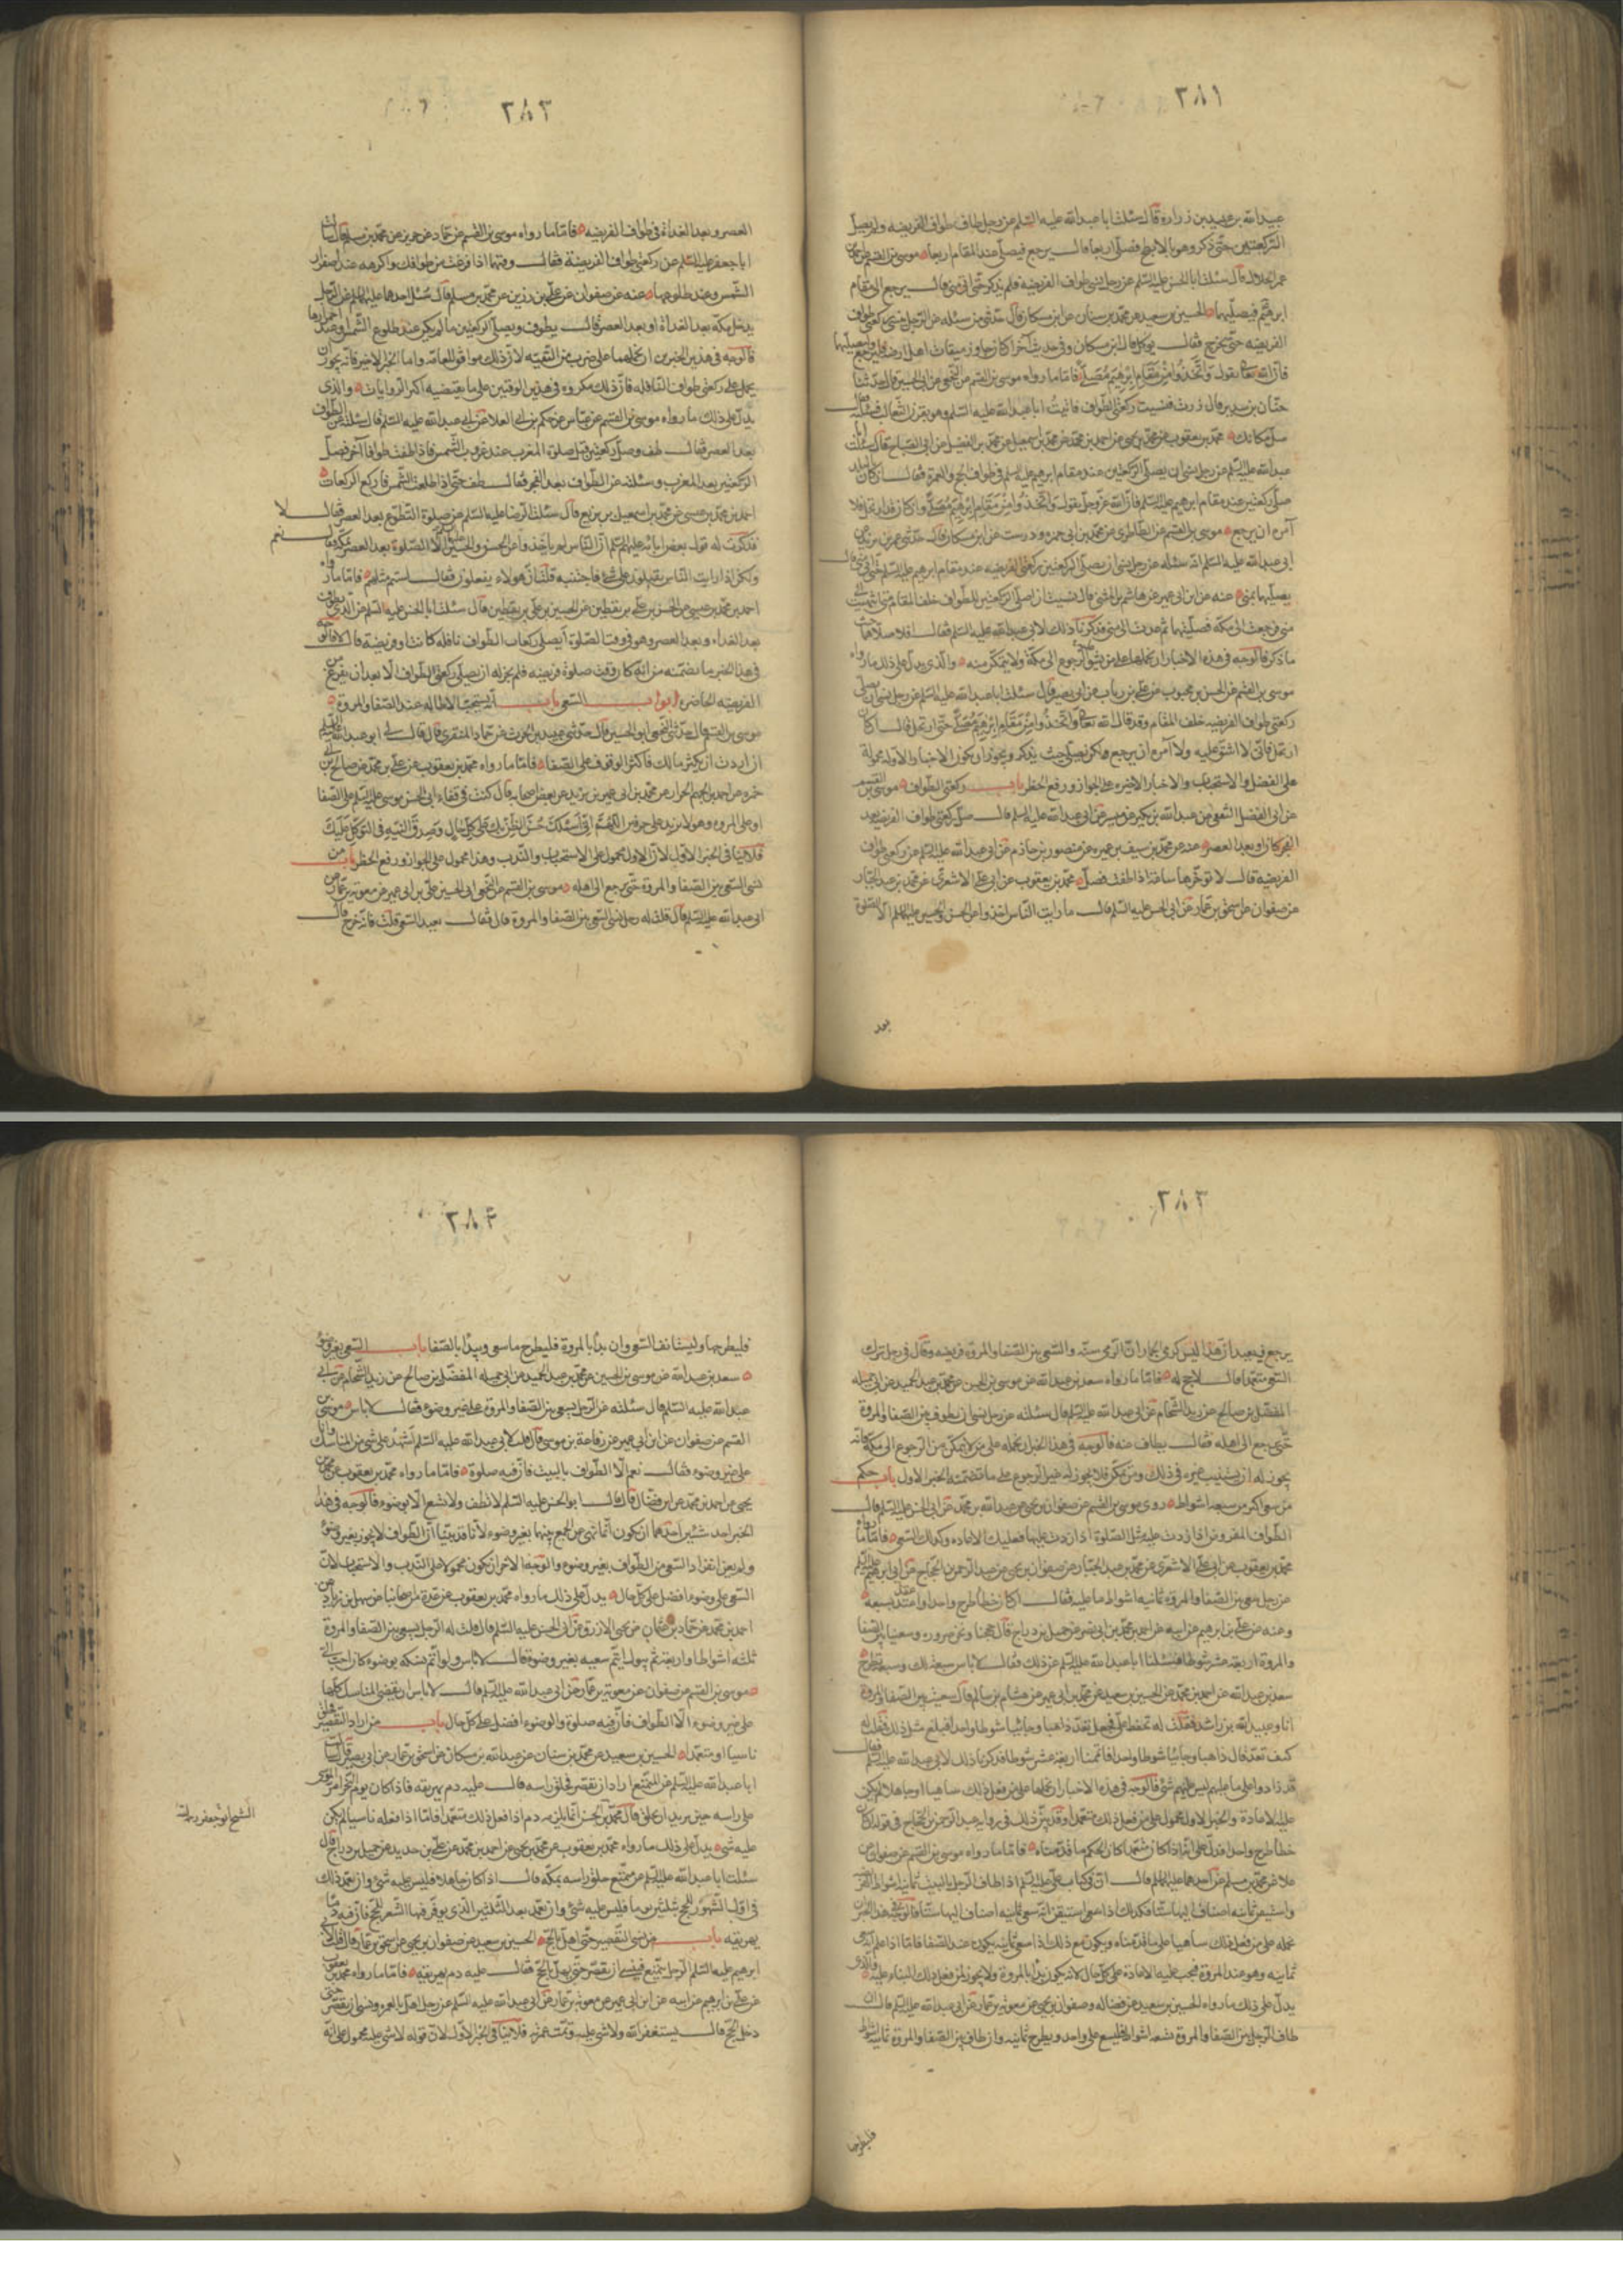 ٢٨١
عبيد الله بن زرارة قال سئلت ابا عبد الله عليه السلم عن رجل طاف طواف الفريضه ولم يصل
الركعتين حتى ذكر وهو بالابطح فصلى اربعا قال يرجع فيصلى عند المقام اربعا موسى بن القسم
عمر الحلال قال سئلت ابا الحسن عليه السلم عن رجل نسى طواف الفريضه فلم يذكر حتى اتى منى قال يرجع الى مقام
ابرهيم فيصليهما الحسين بن سعيد عن محمد بن سنان عن ابن مسكان قال حدثنى من سئله عن الرجل ينسى ركعتى طواف
الفريضه حتى يخرج فقال يوكل قال ابن مسكان وفى حديث آخر ان كان جاوز ميقات اهل ارضه فليرجع وليصليهما
فان الله تعالى يقول واتخذوا من مقام ابرهيم مصلى فاما ما رواه موسى بن القسم عن النخعى عن ابى الحسين قال حدثنا
حنان بن سدير قال زرت فنسيت ركعتى الطواف فاتيت ابا عبد الله عليه السلم وهو بقرن الثعالب فسئلته فقال
صل مكانك محمد بن يعقوب عن محمد بن يحيى عن احمد بن محمد عن محمد بن اسمعيل عن محمد بن الفضيل عن ابى الصباح قال سئلت ابا
عبد الله عليه السلم عن رجل نسى ان يصلى الركعتين عند مقام ابرهيم عليه السلم فى طواف الحج والعمرة فقال ان كان بالبلد
صلى ركعتين عند مقام ابرهيم عليه السلم فان الله عز وجل يقول واتخذوا من مقام ابرهيم مصلى وان كان قد ارتحل فلا
آمره ان يرجع موسى بن القسم عن الطاطرى عن محمد بن ابى حمزه ودرست عن ابن مسكان قال حدثنى عمر بن يزيد عن
ابى عبد الله عليه السلم انه سئله عن رجل نسى ان يصلى الركعتين ركعتى الفريضه عند مقام ابرهيم عليه السلم حتى اتى منى قال
يصليهما بمنى عنه عن ابن ابى عمير عن هاشم بن المثنى قال نسيت ان اصلى الركعتين للطواف خلف المقام حتى انتهيت الى
منى فرجعت الى مكة فصليتهما ثم عدت الى منى فذكرنا ذلك لابى عبد الله عليه السلم فقال افلا صلاهما حيث
ما ذكر فالوجه فى هذه الاخبار ان نحملها على من يشق الرجوع الى مكة ولا يتمكن منه والذى يدل على ذلك ما رواه
موسى بن القسم عن الحسن بن محبوب عن على بن رياب عن ابى بصير قال سئلت ابا عبد الله عليه السلم عن رجل نسى ان يصلى
ركعتى طواف الفريضه خلف المقام وقد قال الله تعالى واتخذوا من مقام ابرهيم مصلى حتى ارتحل فقال ان كان
ارتحل فانى لا اشق عليه ولا آمره ان يرجع ولكن يصلى حيث يذكر ويجوز ان يكون الاخبار الاولة محمولة
على الفضل والاستحباب والاخبار الاخيره على الجواز ورفع الحظر باب ركعتى الطواف موسى بن القسم
عن ابى الفضل الثقفى عن عبد الله بن بكير عن ميسر عن ابى عبد الله عليه السلم قال صل ركعتى طواف الفريضه بعد
الفجر كان او بعد العصر عنه عن محمد بن سيف بن عميره عن منصور بن حازم عن ابى عبد الله عليه السلم عن ركعتى طواف
الفريضه قال لا توخرها ساعة اذا طفت فصل محمد بن يعقوب عن ابى على الاشعرى عن محمد بن عبد الجبار
عن صفوان عن اسحق بن عمار عن ابى الحسن عليه السلم قال ما رايت الناس اخذوا عن الحسن والحسين عليهما السلم الا الصلوة
بعد
٢٨٢
العصر وبعد الغداة فى طواف الفريضه فاما ما رواه موسى بن القسم عن حماد عن حريز عن محمد بن مسلم قال سئلت
ابا جعفر عليه السلم عن ركعتى طواف الفريضة فقال وقتهما اذا فرغت من طوافك واكرهه عند اصفرار
الشمس وعند طلوعها عنه عن صفوان عن على بن رزين عن محمد بن مسلم قال سئل احدهما عليهما السلم عن الرجل
يدخل مكة بعد الغداة او بعد العصر قال يطوف ويصلى الركعتين ما لم يكن عند طلوع الشمس او عند احمرارها
فالوجه فى هذين الخبرين ان نحملهما على ضرب من التقيه لان ذلك موافق للعامه واما الخبر الاخير فانه يجوز ان
يحمل على ركعتى طواف النافله فان ذلك مكروه فى هذين الوقتين على ما يقتضيه اكثر الروايات والذى
يدل على ذلك ما رواه موسى بن القسم عن عباس عن حكم بن ابى العلا عن ابى عبد الله عليه السلم قال سئلته عن الطواف
بعد العصر فقال طف وصل ركعتين قبل صلوة المغرب عند غروب الشمس فاذا طفت طوافا آخر فصل
الركعتين بعد المغرب وسئلته عن الطواف بعد الفجر فقال طف حتى اذا طلعت الشمس فاركع الركعات
احمد بن محمد بن عيسى عن محمد بن اسمعيل بن بزيع قال سئلت الرضا عليه السلم عن صلوة التطوع بعد العصر فقال لا
فذكرت له قول بعض ابائه عليهم السلم ان الناس لم ياخذوا عن الحسن والحسين الا الصلوة بعد العصر بمكة فقال نعم
ولكن اذا رايت الناس يقبلون على شئ فاجتنبه فقلت ان هولاء يفعلون فقال لستم مثلهم فاما ما رواه
احمد بن محمد بن عيسى عن الحسن بن على بن يقطين عن الحسين بن على بن يقطين قال سئلت ابا الحسن عليه السلم عن الذى يطوف
بعد الغداة وبعد العصر وهو فى وقت الصلوة ايصلى ركعات الطواف نافله كانت او فريضة قال لا فالوجه
فى هذا الخبر ما تضمنه من انه كان وقت صلوة فريضه فلم يجز له ان يصلى ركعتى الطواف الا بعد ان يفرغ من
الفريضه الحاضره ابواب السعى باب انه يستحب الاطاله عند الصفا والمروة
موسى بن القسم قال حدثنى النخعى ابو الحسين قال حدثنى عبيد بن الحرث عن حماد المنقرى قال قال لى ابو عبد الله عليه السلم
ان اردت ان يكثر مالك فاكثر الوقوف على الصفا فاما ما رواه محمد بن يعقوب عن على بن محمد عن صالح بن ابى
حمزه عن احمد بن الجهم الخزاز عن محمد بن ابى عمير بن يزيد عن بعض اصحابه قال كنت فى قفاء ابى الحسن موسى عليه السلم على الصفا
او على المروه وهو لا يزيد على حرفين اللهم انى اسئلك حسن الظن بك على كل حال وصدق النيه فى التوكل عليك
فلا ينافى الخبر الاول لان الاول محمول على الاستحباب والندب وهذا محمول على الجواز ورفع الحظر باب من
نسى السعى بين الصفا والمروة حتى يرجع الى اهله موسى بن القسم عن النخعى ابى الحسين على بن ابى عمير عن معوية بن عمار عن
ابى عبد الله عليه السلم قال قلت له رجل نسى السعى بين الصفا والمروة قال فقال يعيد السعى قلت فانه خرج قال
٢٨٣
يرجع فيعيد ان هذا ليس كرمى الجمار ان الرمى سنة والسعى بين الصفا والمروة فريضه وقال فى رجل ترك
السعى متعمدا قال لا حج له فاما ما رواه سعد بن عبد الله عن موسى بن الحسن عن محمد بن عبد الحميد عن ابى جميله
المفضل بن صالح عن زيد الشحام عن ابى عبد الله عليه السلم قال سئلته عن رجل نسى ان يطوف بين الصفا والمروة
حتى يرجع الى اهله فقال يطاف عنه فالوجه فى هذا الخبر ان نحمله على من لا يتمكن من الرجوع الى مكة فانه
يجوز له ان يستنيب غيره فى ذلك ومن تمكن فلا يجوز له غير الرجوع على ما تضمنه الخبر الاول باب حكم
من سعى اكثر من سبعة اشواط روى موسى بن القسم عن صفوان بن يحيى عن عبد الله بن محمد عن ابى الحسن عليه السلم قال
الطواف المفروض اذا زدت عليه مثل الصلوة اذا زدت عليها فعليك الاعاده وكذلك السعى فاما ما رواه
محمد بن يعقوب عن ابى على الاشعرى عن محمد بن عبد الجبار عن صفوان بن يحيى عن عبد الرحمن بن الحجاج عن ابى ابرهيم عليه السلم
عن رجل سعى بين الصفا والمروة ثمانيه اشواط ما عليه فقال ان كان خطأ طرح واحدا واعتد بسبعة
وعنه عن على بن ابرهيم عن ابيه عن احمد بن محمد بن ابى نصر عن جميل بن دراج قال حججنا ونحن صروره وسعينا بين الصفا
والمروة اربعة عشر شوطا فسئلنا ابا عبد الله عليه السلم عن ذلك فقال لا باس سبعة لك وسبعة تطرح
سعد بن عبد الله عن احمد بن محمد عن الحسين بن سعيد عن محمد بن ابى عمير عن هشام بن سالم قال سعيت بين الصفا والمروة
انا وعبيد الله بن راشد فقلت له تحفظ على فجعل يعد ذاهبا وجائيا شوطا واحدا فبلغ مثل ذلك فقلت له
كيف تعد قال ذاهبا وجائيا شوطا واحدا فاتممنا اربعة عشر شوطا فذكرنا ذلك لابى عبد الله عليه السلم فقال
قد زادوا على ما عليهم ليس عليهم شئ فالوجه فى هذه الاخبار ان نحملها على من فعل ذلك ساهيا او جاهلا لم يكن
عليه الاعادة والخبر الاول محمول على من فعل ذلك متعمدا وقد بين ذلك فى روايه عبد الرحمن بن الحجاج فى قوله ان كان
خطأ طرح واحدا فدل على انه اذا كان متعمدا كان الحكم ما قدمناه فاما ما رواه موسى بن القسم عن صفوان عن
علا عن محمد بن مسلم عن احدهما عليهما السلم قال ان فى كتاب على عليه السلم اذا طاف الرجل بالبيت ثمانية اشواط الفريضه
واستيقن ثمانيه اضاف اليها ستا فكذلك اذا سعى استيقن انه سعى ثمانيه اضاف اليها ستا فالوجه فى هذا الخبر ان
نحمله على من فعل ذلك ساهيا على ما قدمناه ويكون مع ذلك اذا سعى ثمانيه يكون عند الصفا فاما اذا علم انه سعى
ثمانيه وهو عند المروة فيجب عليه الاعادة على كل حال لانه يكون بدأ بالمروة ولا يجوز لمن فعل ذلك البناء عليه والذى
يدل على ذلك ما رواه الحسين بن سعيد عن فضاله وصفوان بن يحيى عن معوية بن عمار عن ابى عبد الله عليه السلم قال ان
طاف الرجل بين الصفا والمروة تسعه اشواط فليسع على واحد ويطرح ثمانيه وان طاف بين الصفا والمروة ثمانيه اشواط
فليطرحها
٢٨٤
فليطرحها وليستانف السعى وان بدأ بالمروة فليطرح ما سعى ويبدأ بالصفا باب السعى بغير وضوء
سعد بن عبد الله عن موسى بن الحسين عن محمد بن عبد الحميد عن ابى جميله المفضل بن صالح عن زيد الشحام عن ابى
عبد الله عليه السلم قال سئلته عن الرجل يسعى بين الصفا والمروة على غير وضوء فقال لا باس موسى بن
القسم عن صفوان عن ابن ابى عمير عن رفاعة بن موسى قال قلت لابى عبد الله عليه السلم اشهد على شئ من المناسك وانا
على غير وضوء فقال نعم الا الطواف بالبيت فان فيه صلوة فاما ما رواه محمد بن يعقوب عن محمد بن
يحيى عن احمد بن محمد عن ابن فضال قال قال ابو الحسن عليه السلم لا تطف ولا تسع الا بوضوء فالوجه فى هذا
الخبر احد شيئين احدهما ان يكون انما نهى عن الجمع بينهما بغير وضوء لانا قد بينا ان الطواف لا يجوز بغير وضوء
ولم يعن انفراد السعى من الطواف بغير وضوء والوجه الاخر ان يكون محمولا على الندب والاستحباب لان
السعى على وضوء افضل على كل حال يدل على ذلك ما رواه محمد بن يعقوب عن عدة من اصحابنا عن سهل بن زياد عن
احمد بن محمد عن حماد بن عثمان عن يحيى الازرق عن ابى الحسن عليه السلم قال قلت له الرجل يسعى بين الصفا والمروة
ثلثه اشواط او اربعة ثم يبول ايتم سعيه بغير وضوء قال لا باس ولو اتم نسكه بوضوء كان احب الى
موسى بن القسم عن صفوان عن معوية بن عمار عن ابى عبد الله عليه السلم قال لا باس ان يقضى المناسك كلها
على غير وضوء الا الطواف فان فيه صلوة والوضوء افضل على كل حال باب من اراد التقصير فحلق
ناسيا او متعمدا الحسين بن سعيد عن محمد بن سنان عن عبد الله بن مسكان عن اسحق بن عمار عن ابى بصير قال سئلت
ابا عبد الله عليه السلم عن المتمتع اراد ان يقصر فحلق راسه قال عليه دم يهريقه فاذا كان يوم النحر امر الموسى
على راسه حين يريد ان يحلق قال محمد بن الحسن انما يلزمه دم اذا فعل ذلك متعمدا فاما اذا فعله ناسيا لم يكن
عليه شئ يدل على ذلك ما رواه محمد بن يعقوب عن محمد بن يحيى عن احمد بن محمد عن على بن حديد عن جميل بن دراج قال
سئلت ابا عبد الله عليه السلم عن متمتع حلق راسه بمكة قال ان كان جاهلا فليس عليه شئ وان تعمد ذلك
فى اول الشهور للحج بثلثين يوما فليس عليه شئ وان تعمد بعد الثلثين الذى يوفر فيها الشعر للحج فان فيه دما
يهريقه باب من نسى التقصير حتى اهل بالحج الحسين بن سعيد عن صفوان بن يحيى عن اسحق بن عمار قال قلت لابى
ابرهيم عليه السلم الرجل يتمتع فينسى ان يقصر حتى يهل بالحج فقال عليه دم يهريقه فاما ما رواه محمد بن يعقوب
عن على بن ابرهيم عن ابيه عن ابن ابى عمير عن معوية بن عمار عن ابى عبد الله عليه السلم عن رجل اهل بالعمره ونسى ان يقصر حتى
دخل الحج قال يستغفر الله ولا شئ عليه وتمت عمرته فلا ينافى الخبر الاول لان قوله لا شئ عليه محمول على انه
الشيخ ابو جعفر